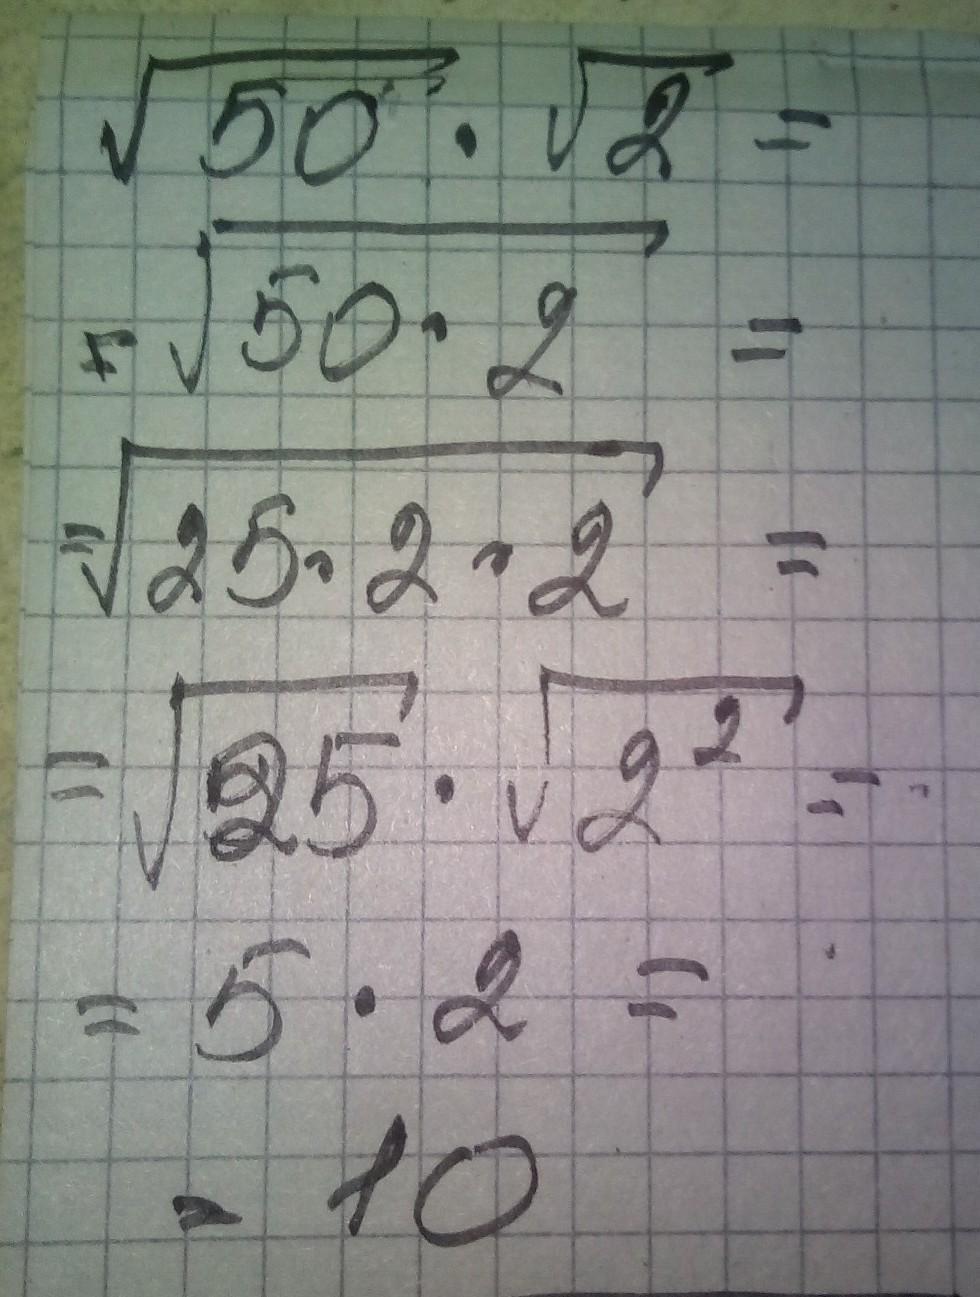 √50 · √2 =
= √50 · 2 =
= √25 · 2 · 2 =
= √25 · √2² =
= 5 · 2 =
= 10